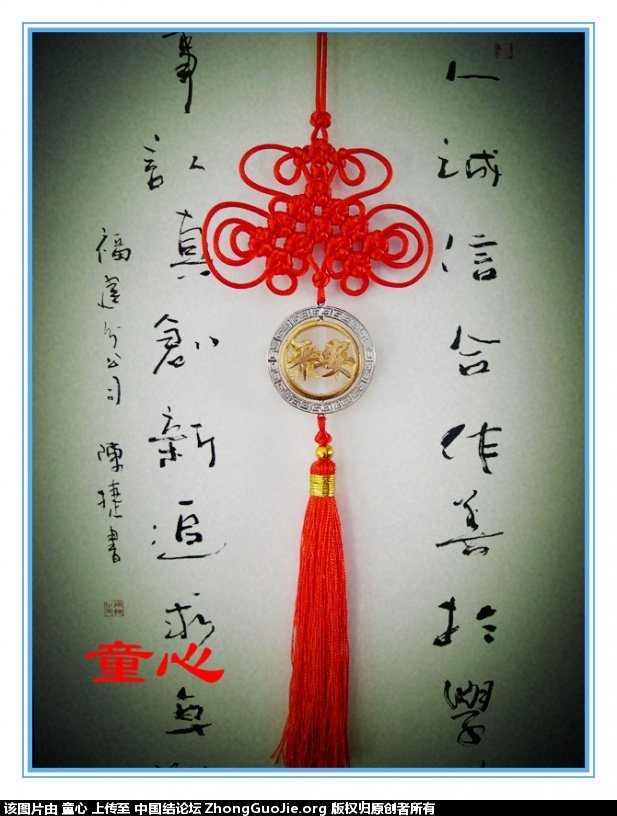 人诚信合作善於學
事认真創新追求卓
福建分公司 陳捷書
平安
童心
该图片由 童心 上传至 中国结论坛 ZhongGuoJie.org 版权归原创者所有